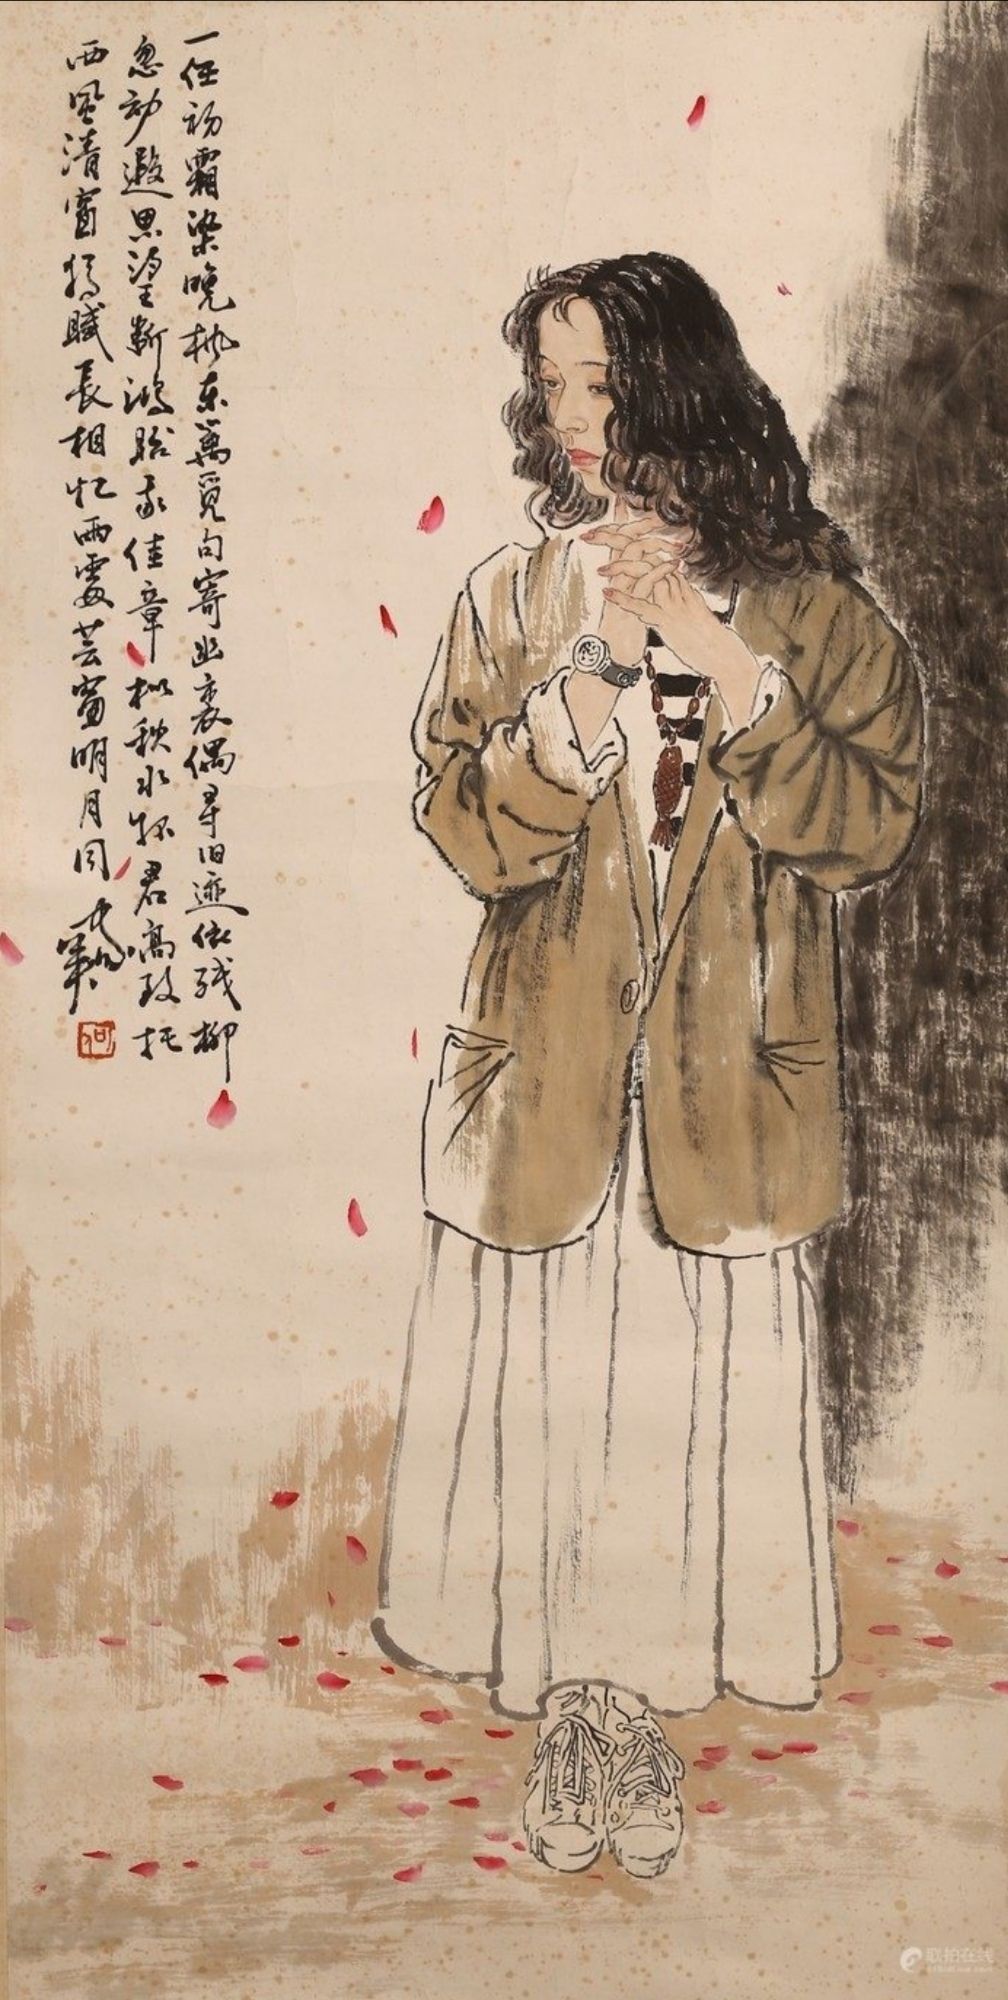 一任初霜染晚枫东篱觅句寄幽衷偶寻旧迹依残柳
忽动遐思望断鸿贻我佳章拟秋水怀君高致托
西风清宵独赋长相忆两处芸窗明月同
联拍在线